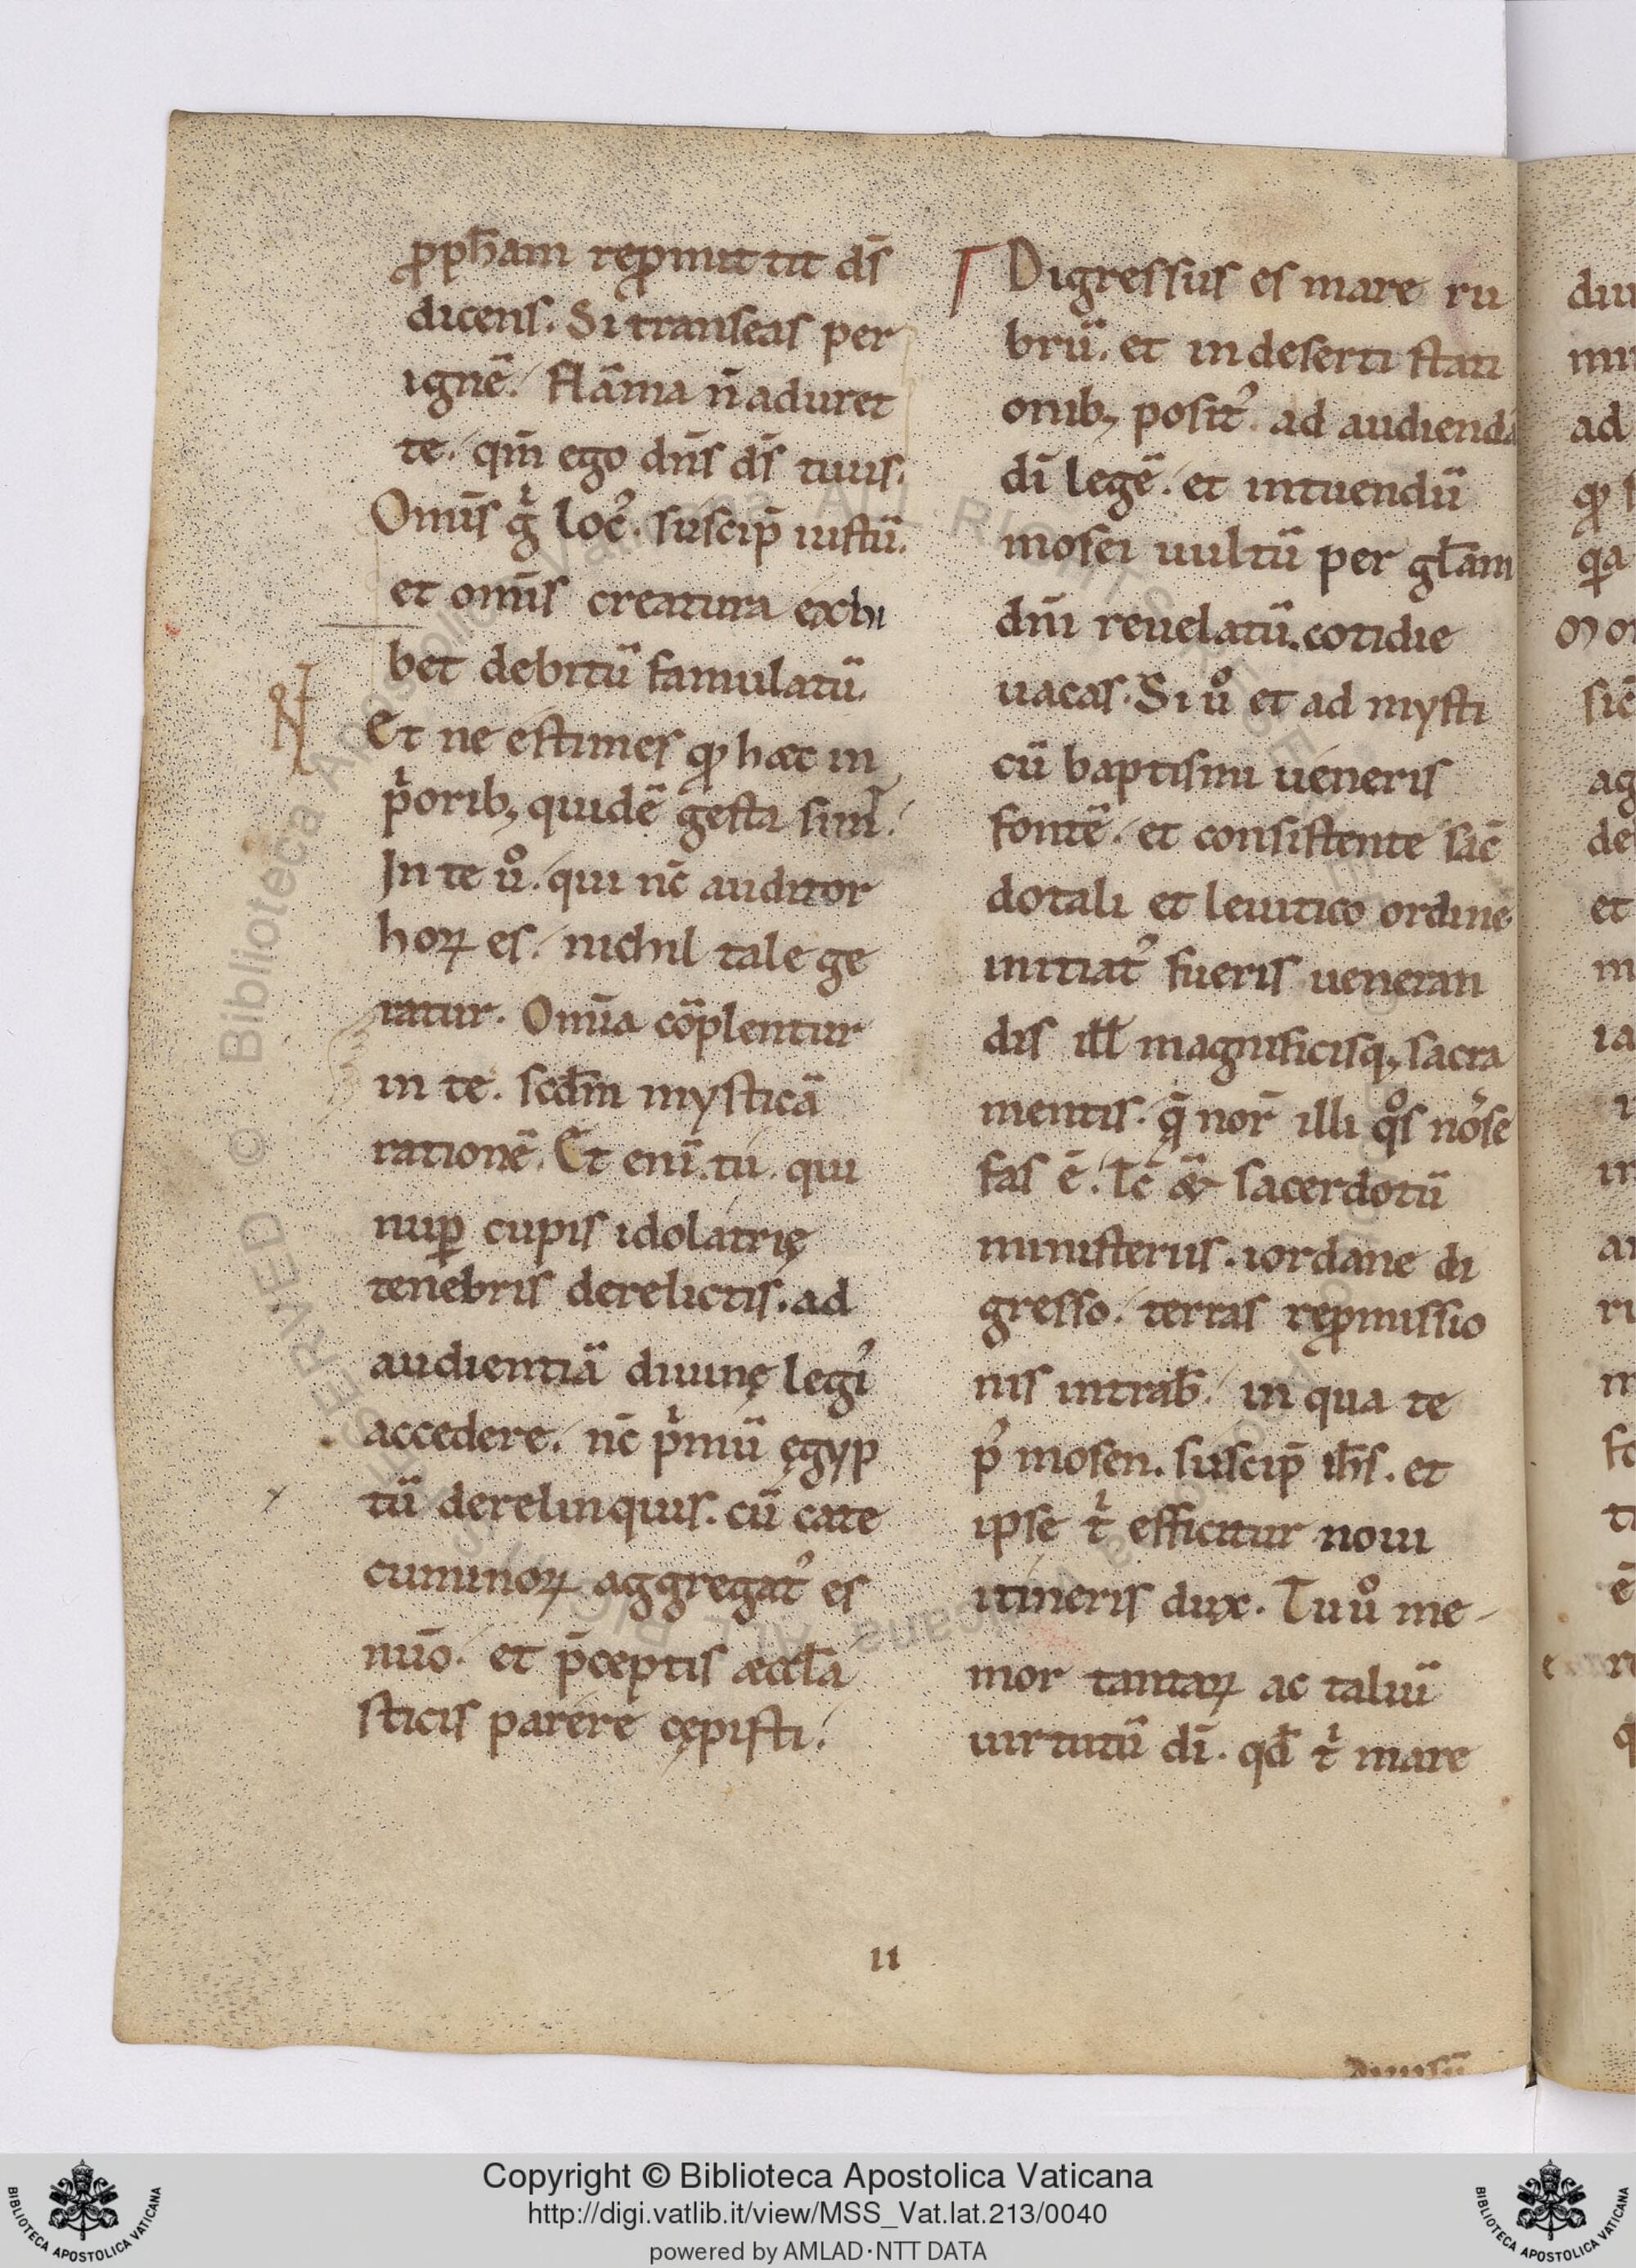 ꝓph̄am reꝓmittit ds̄
dicens. Si transeas per
ignē. flāma n̄ aduret
te. qm̄ ego dn̄s ds̄ tuus.
Omīs gͥ locꝰ. suscip̄ iustū.
et omīs creatura exhi
bet debitū famulatū.
Et ne estimes qꝫ hæc in
pͥoribꝫ quidē gesta sunt.
In te uͦ. qui nc̄ auditor
hoꝝ es. nichil tale ge
ratur. Omīa cōplentur
in te. scdm̄ mysticā
rationē. Et enī tu qui
nuꝑ cupis idolatrię
tenebris derelictis. ad
audientiā diuinę legꝭ
accedere. nc̄ pͥmū ęgyp
tū derelinquis. cū cate
cuminoꝝ aggregatꝰ es
nūo. et p̄ceptis æccl̄a
sticis parere cępisti.
Digressus es mare ru
brū. et in deserti stati
onibꝫ positꝰ. ad audiendā
dī legē. et intuendū
mosei uultū per gl̄am
dn̄i reuelatū. cotidie
uacas. Si uͦ et ad mysti
cū baptismi ueneris
fontē. et consistente sac̄
dotali et leuitico ordine
initiatꝰ fueris ueneran
dis ill̄ magnificisqꝫ sacra
mentis. q̄ nor̄ illi qͦs nosse
fas ē. tc̄ &iā sacerdotū
ministeriis. iordane di
gresso. terras reꝓmissio
nis intrab̄. in qua te
pꝰ mosen. suscip̄ ih̄s. et
ipse tͥ efficitur noui
itineris dux. Tu uͦ me
mor tantaꝝ ac taliū
uirtutū dī. qd̄ tͥ mare
II
diuisū